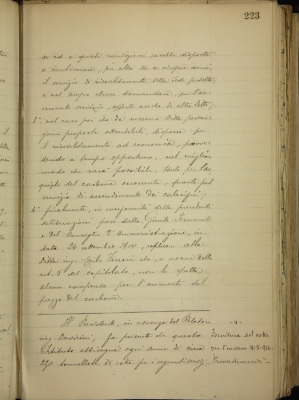 223
se ed a quali condizioni, sarebbe disposta
a continuare, per altri sei o cinque anni,
il servizio di riscaldamento della Sede predetta,
e nel tempo stesso domandare, per l'ac-
cennato servizio, offerte anche di altre Ditte;
3° nel caso poi che da nessuna Ditta perven-
gano proposte attendibili, disporre per
il riscaldamento ad economia, provve-
dendo a tempo opportuno, nel miglior
modo che sarà possibile, tanto per l'ac-
quisto del carbone occorrente, quanto pel
servizio di accendimento dei caloriferi;
4° finalmente, in conformità delle precedenti
deliberazioni prese dalla Giunta
e dal Consiglio d'Amministrazione, in
data 26 1914, replicare alla
Ditta ing. Carlo che, a norma dello
art. 5 del capitolato, non le spetta
alcun compenso per l'aumento del
prezzo del carbone.
Il Presidente, in assenza del Relatore
ing. fa presente che questo
Istituto abbisogna ogni anno di circa
di coke per i seguenti
Fornitura del coke